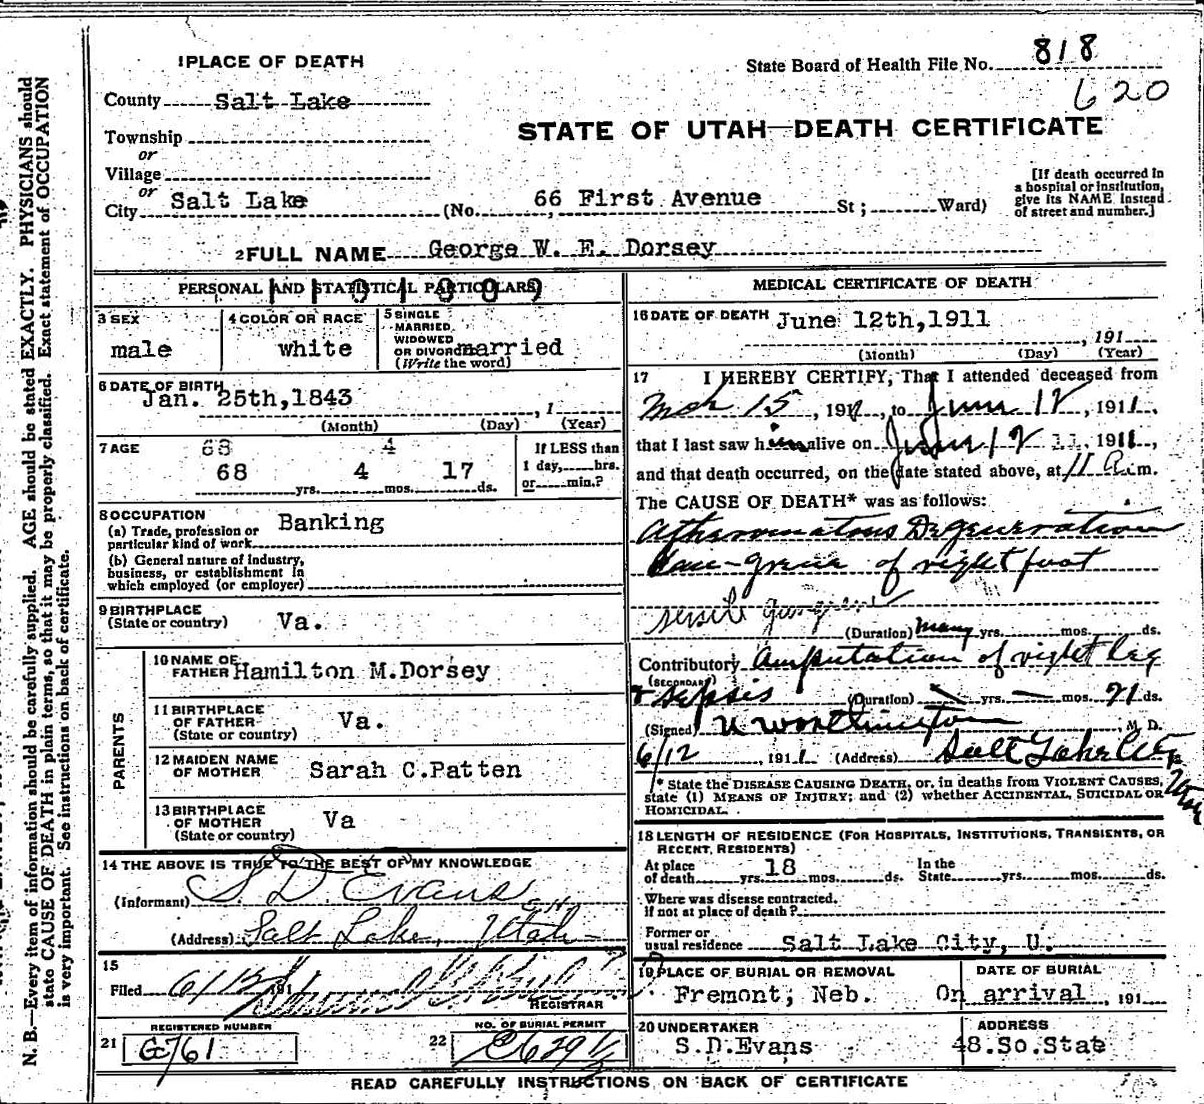 1PLACE OF DEATH
State Board of Health File No. 818
620
County Salt Lake
STATE OF UTAH—DEATH CERTIFICATE
Township
or
Village
or
City Salt Lake (No. 66 First Avenue St; Ward)
[If death occurred in
a hospital or institution,
give its NAME instead
of street and number.]
2FULL NAME George W. E. Dorsey
PERSONAL AND STATISTICAL PARTICULARS
3 SEX
male
4 COLOR OR RACE
white
5 SINGLE
MARRIED
WIDOWED
OR DIVORCED married
(Write the word)
6 DATE OF BIRTH
Jan. 25th,1843 , 1
(Month) (Day) (Year)
7 AGE 68 4
68 yrs. 4 mos. 17 ds.
If LESS than
1 day, hrs.
or min.?
8 OCCUPATION
(a) Trade, profession or
particular kind of work Banking
(b) General nature of industry,
business, or establishment in
which employed (or employer)
9 BIRTHPLACE
(State or country) Va.
PARENTS
10 NAME OF
FATHER Hamilton M.Dorsey
11 BIRTHPLACE
OF FATHER
(State or country) Va.
12 MAIDEN NAME
OF MOTHER Sarah C.Patten
13 BIRTHPLACE
OF MOTHER
(State or country) Va
14 THE ABOVE IS TRUE TO THE BEST OF MY KNOWLEDGE
(Informant) S. D Evans
(Address) Salt Lake, Utah
15
Filed 6/13 191
REGISTRAR
REGISTERED NUMBER
21 G761
NO. OF BURIAL PERMIT
22 C6291/2
MEDICAL CERTIFICATE OF DEATH
16 DATE OF DEATH June 12th,1911
, 191
(Month) (Day) (Year)
17 I HEREBY CERTIFY, That I attended deceased from
Mch 15, 191, to June 12, 1911,
that I last saw him alive on June 12 11, 1911,
and that death occurred, on the date stated above, at 11 A.m.
The CAUSE OF DEATH* was as follows:
Atheromatous Degeneration
Gan-grene of right foot
senile gangrene
(Duration) Many yrs. mos. ds.
Contributory Amputation of right leg
(SECONDARY)
& sepsis (Duration) yrs. mos. 21 ds.
(Signed) Worthington M. D.
6/12, 1911 (Address) Salt Lake City
Utah
* State the DISEASE CAUSING DEATH, or, in deaths from VIOLENT CAUSES,
state (1) MEANS OF INJURY; and (2) whether ACCIDENTAL, SUICIDAL OR
HOMICIDAL.
18 LENGTH OF RESIDENCE (FOR HOSPITALS, INSTITUTIONS, TRANSIENTS, OR
RECENT RESIDENTS)
At place
of death yrs. 18 mos. ds.
In the
State yrs. mos. ds.
Where was disease contracted.
if not at place of death?
Former or
usual residence Salt Lake City, U.
19 PLACE OF BURIAL OR REMOVAL
Fremont, Neb.
DATE OF BURIAL
On arrival , 191
20 UNDERTAKER
S.D.Evans
ADDRESS
48.So.State
READ CAREFULLY INSTRUCTIONS ON BACK OF CERTIFICATE
N. B.—Every item of information should be carefully supplied. AGE should be stated EXACTLY. PHYSICIANS should
state CAUSE OF DEATH in plain terms, so that it may be properly classified. Exact statement of OCCUPATION
is very important. See instructions on back of certificate.